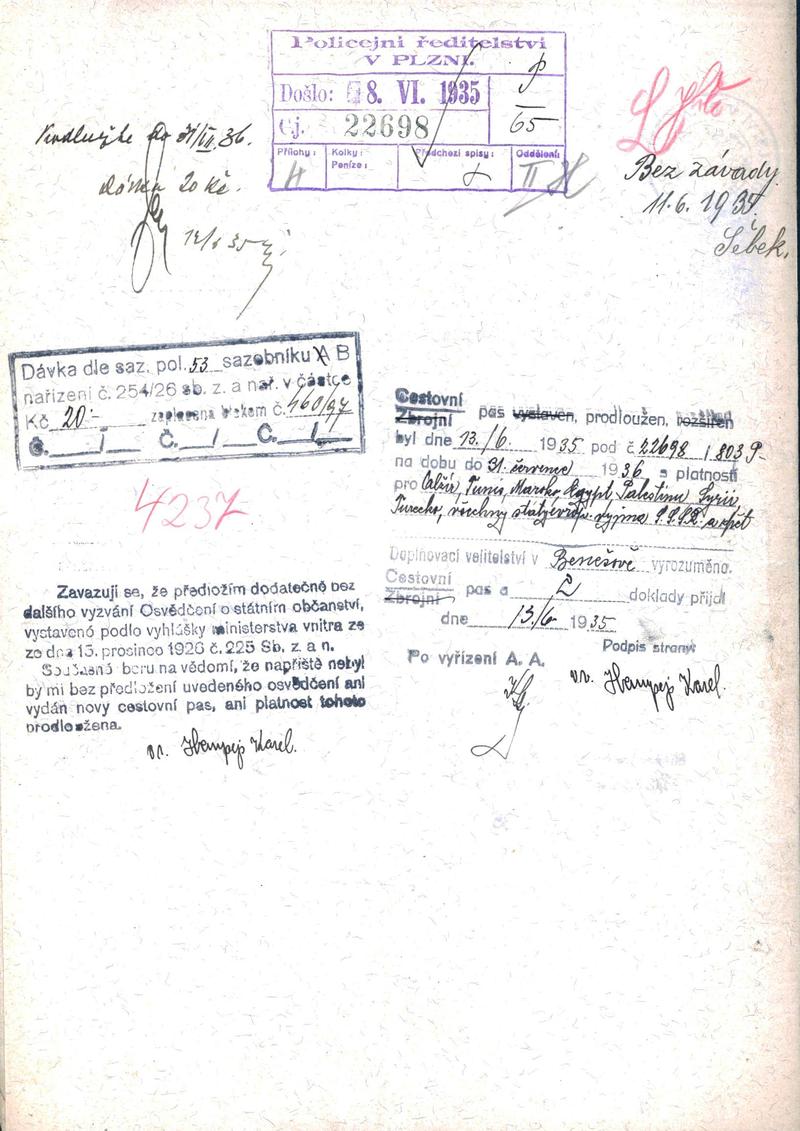 Policejní ředitelství
V PLZNI.
Došlo: 8. VI. 1935
Čj. 22698
P
65
Přílohy: 4
Kolky:
Peníze:
Předchozí spisy:
Oddělení: II
do 31/VII. 36.
20 Kč.
Bez závady
11.6. 1935.
Šebek.
Dávka dle saz. pol. 53 sazebníku A B
nařízení č. 254/26 sb. z. a nař. v částce
Kč 20.- zaplacena blokem č. 460/97
Č. / Č. / Č. /
4237
Cestovní
Zbrojní pas vystaven, prodloužen, rozšířen
byl dne 13./6. 1935 pod č. 22698 / 803 P-
na dobu do 31. července 1936 s platností
pro Alžír, Tunis, Maroko, Egypt, Palestinu, Syrii,
Turecko, všechny státy evrop. vyjma S.S.S.R. a zpět
Doplňovací velitelství v Benešově vyrozuměno.
Cestovní
Zbrojní pas a 2 doklady přijal
dne 13./6. 1935
Po vyřízení A. A.
Podpis strany:
vr. Hempej Karel.
Zavazuji se, že předložím dodatečně bez
dalšího vyzvání Osvědčení o státním občanství,
vystavené podlo vyhlášky ministerstva vnitra ze
ze dna 15. prosince 1926 č. 225 Sb. z. a n.
Současně beru na vědomí, že napříště nebyl
by mi bez předložení uvedeného osvědčení ani
vydán nový cestovní pas, ani platnost tohoto
prodloužena.
vr. Hempej Karel.